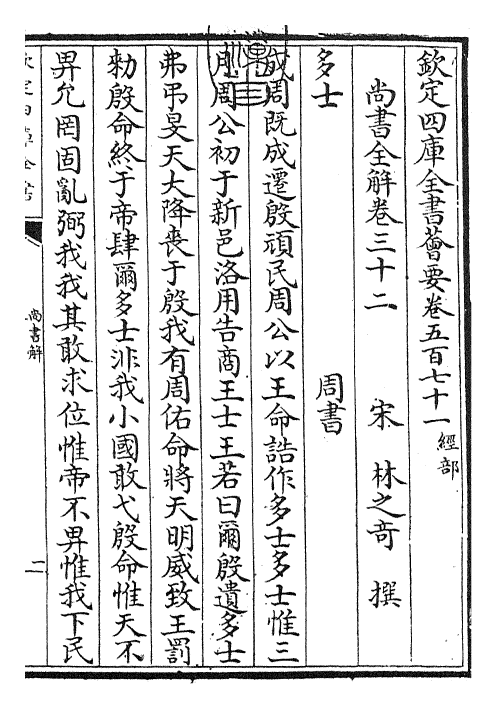 欽定四庫全書薈要卷五百七十一 經部
尚書全解卷三十二 宋 林之奇 撰
多士 周書
成周既成遷殷頑民周公以王命誥作多士多士惟三
月周公初于新邑洛用告商王士王若曰爾殷遺多士
弗弔旻天大降喪于殷我有周佑命將天明威致王罰
勑殷命終于帝肆爾多士非我小國敢弋殷命惟天不
畀允罔固亂弼我我其敢求位惟帝不畀惟我下民
尚書解
二